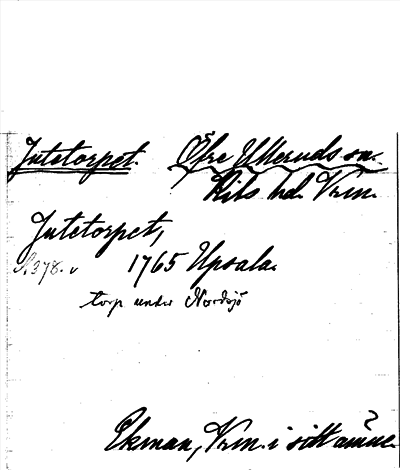 Jutetorpet. Öfre Ulleruds sn.
Kils hd. Vrm.
Jutetorpet,
S. 378. v 1765 Upsala.
torp under Nordsjö
Ekman, Vrm. i sitt ämne